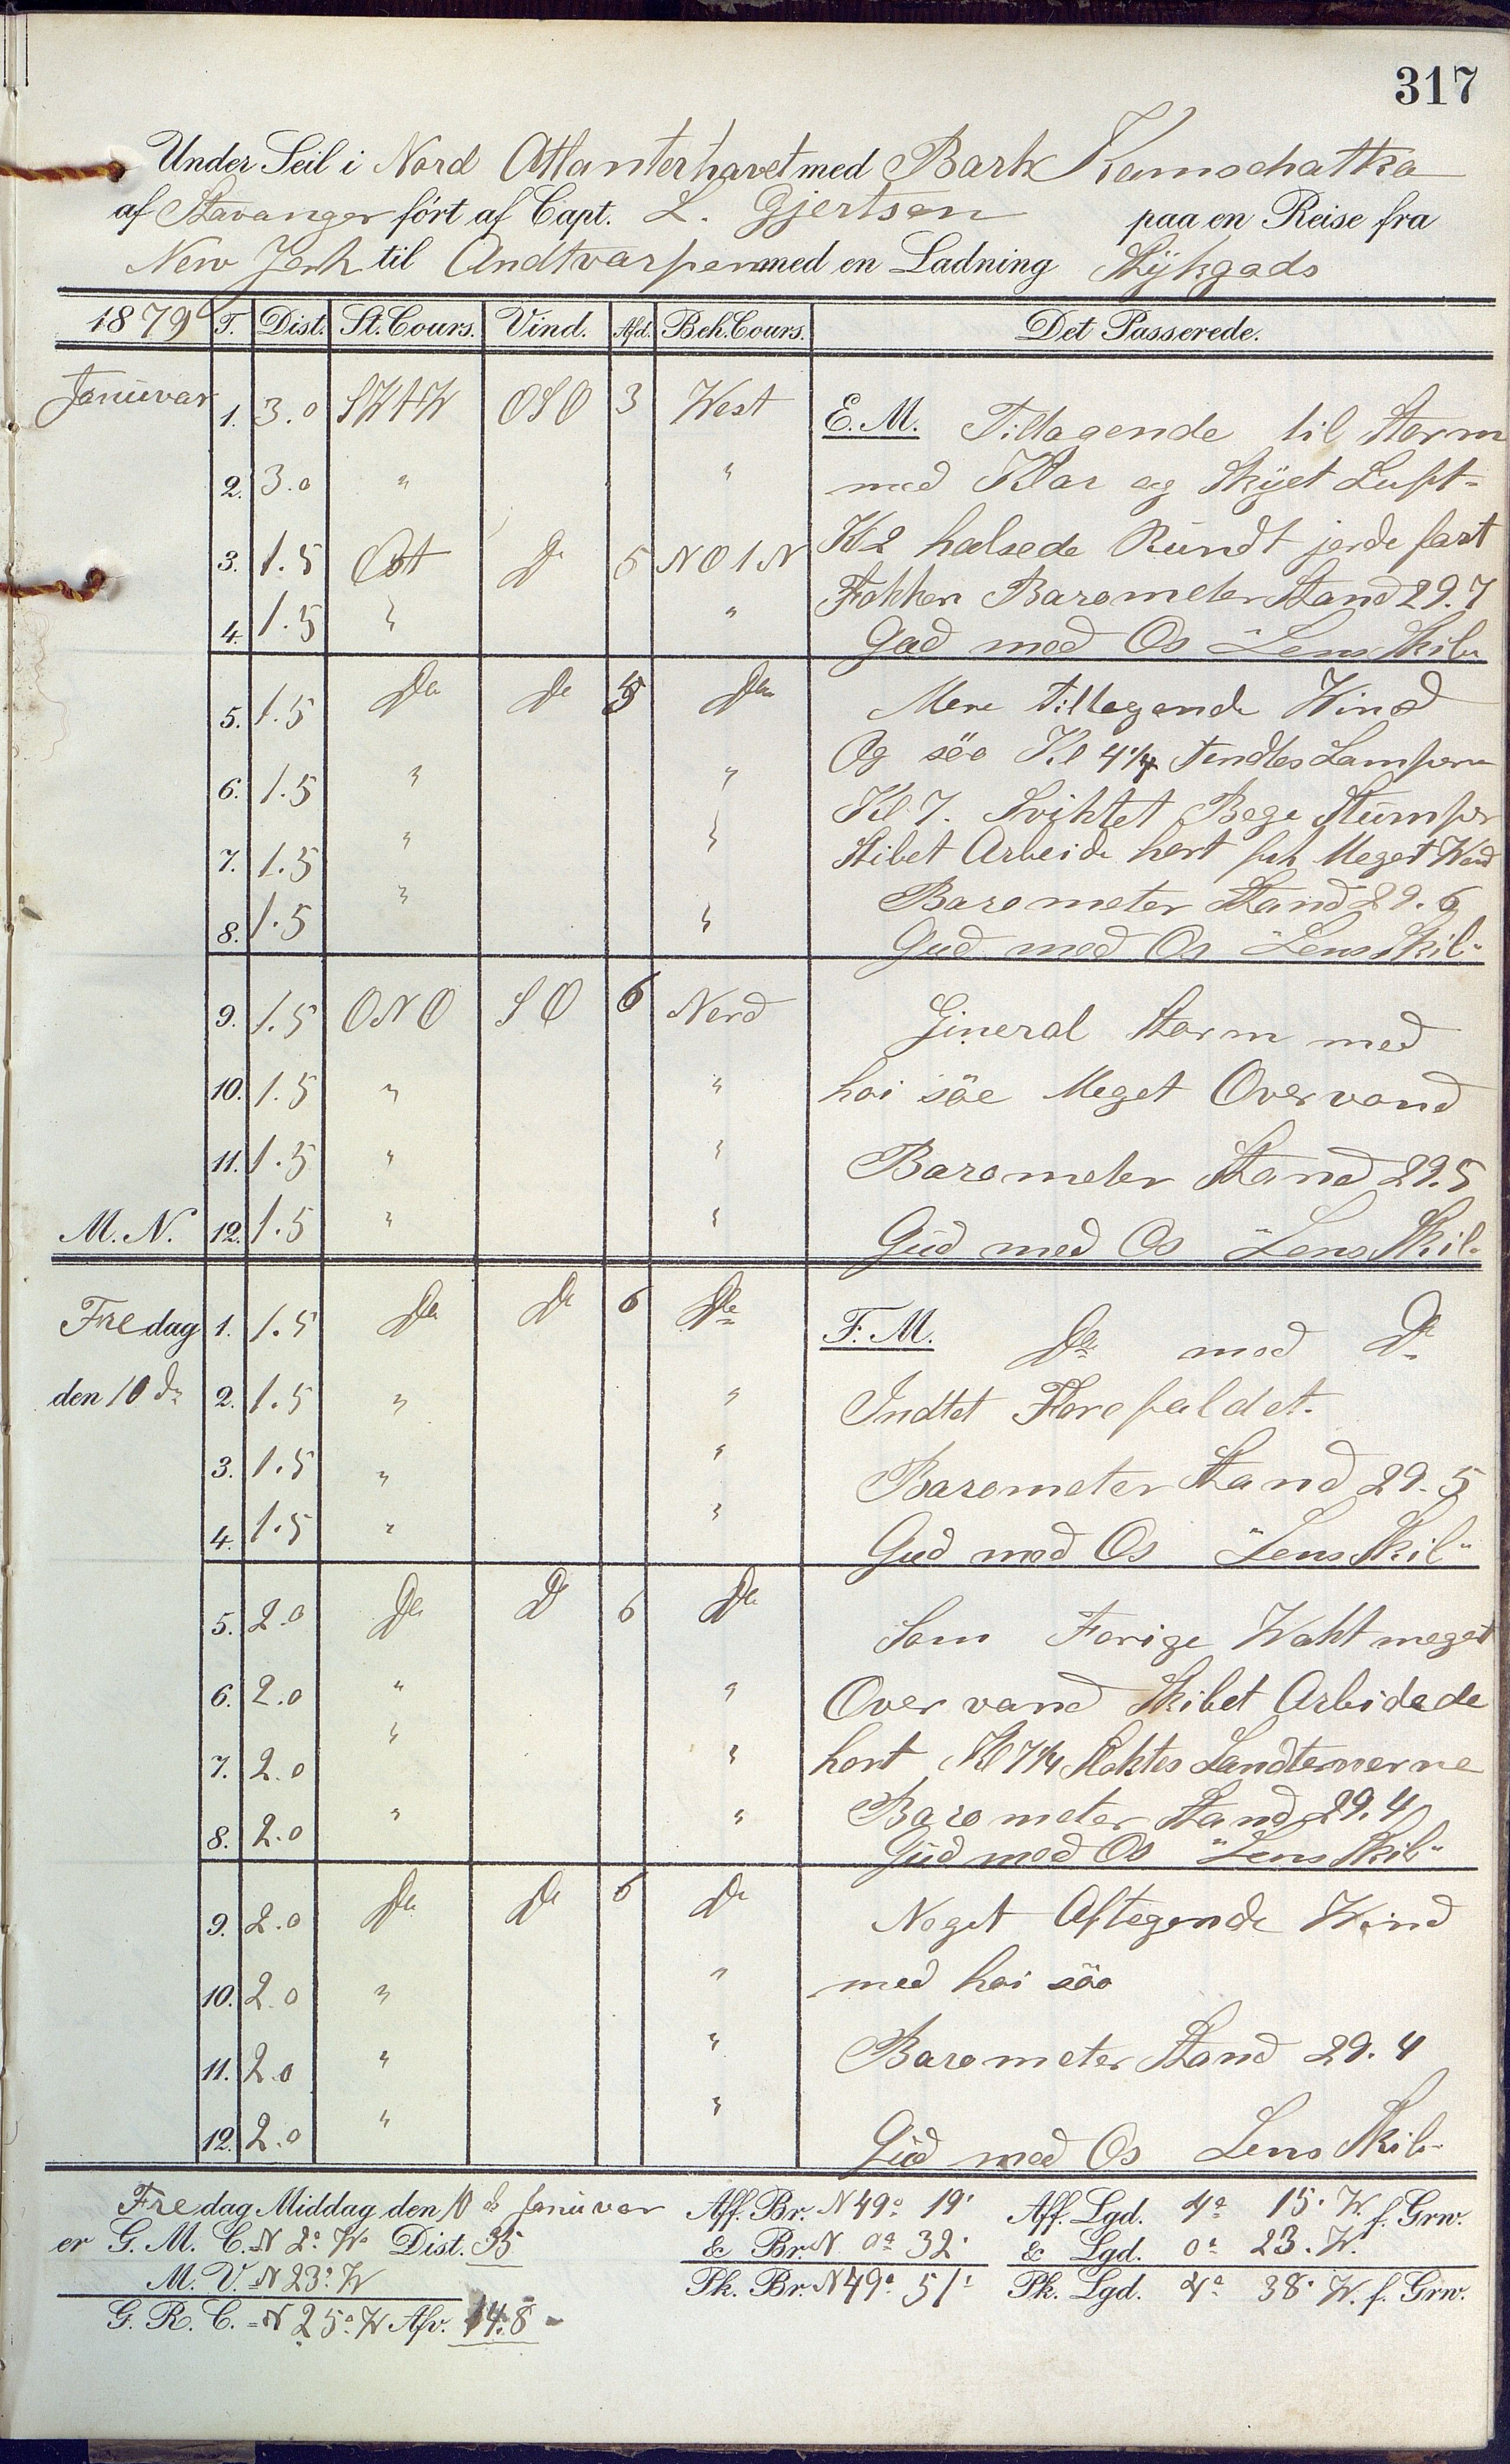 317
Under Seil i Nord Atlanterhavet med Bark Kamschatka
af Stavanger ført af Capt. L. Gjertsen paa en Reise fra
New Jork til Andtvarpen med en Ladning Stÿkgods
1879 T. Dist. St. Cours. Vind. Afd. Beh. Cours. Det Passerede.
Januvar 1. 3.0 SWtW OSO 3 West E.M. Tiltagende til Storm
2. 3.0 " " med Klar og Skÿet Luft-
3. 1.5 Ost Do 5 NOtN Kl 2 halsede Rundt jorde fast
4. 1.5 " " Fokken Barometer Stand 29.7
Gud med Os "Lens Skib"
5. 1.5 Do Do 5 Do Mere tiltagende Wind
6. 1.5 " " Og söo Kl 4 1/4 tendtes Lamperne
7. 1.5 " " Kl 7. Svihtet Bege Stumper
Skibet Arbeide hort fik Meget Wand
8. 1.5 " " Barometer Stand 29.6
Gud med Os "Lens Skib"
9. 1.5 ONO SO 6 Nord Gineral Storm med
10. 1.5 " " hoi söe Meget Overvand
11. 1.5 " " Barometer Stand 29.5
M. N. 12. 1.5 " " Gud med Os "Lens Skib"
Fredag 1. 1.5 Do Do 6 Do F. M. Do med Do
den 10 de 2. 1.5 " " Indtet Forefaldet.
3. 1.5 " " Barometer Stand 29.5
4. 1.5 " " Gud med Os "Lens Skib"
5. 2.0 Do Do 6 Do Som Forige Wakt meget
6. 2.0 " " Over vand Skibet Arbidede
7. 2.0 " " hort Kl 7 1/4 Sloktes Landternerne
8. 2.0 " " Barometer Stand 29.4
Gud med Os "Lens Skib"
9. 2.0 Do Do 6 Do Noget Aftegende Wind
10. 2.0 " " med hoi söo
11. 2.0 " " Barometer Stand 29.4
12. 2.0 " " Gud med Os Lens Skib-
Fredag Middag den 10 de Januvar Aff. Br. N 49° 19' Aff. Lgd. 4° 15' W. f. Grw.
er G. M. C. = N 2° W Dist. 35 & Br. N 0° 32' & Lgd. 0° 23' W.
M. V. = N 23° W Pk. Br. N 49° 51' Pk. Lgd. 4° 38' W. f. Grw.
G. R. C. = N 25° W Afv. 14.8